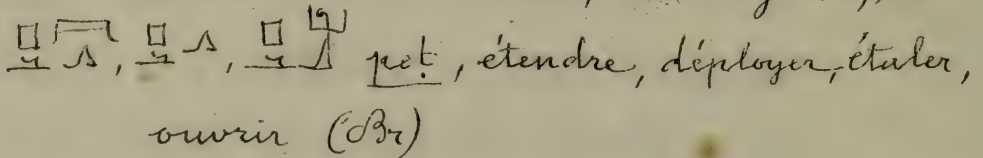 peṭ, étendre, déployer, étaler,
ouvrir (Br)